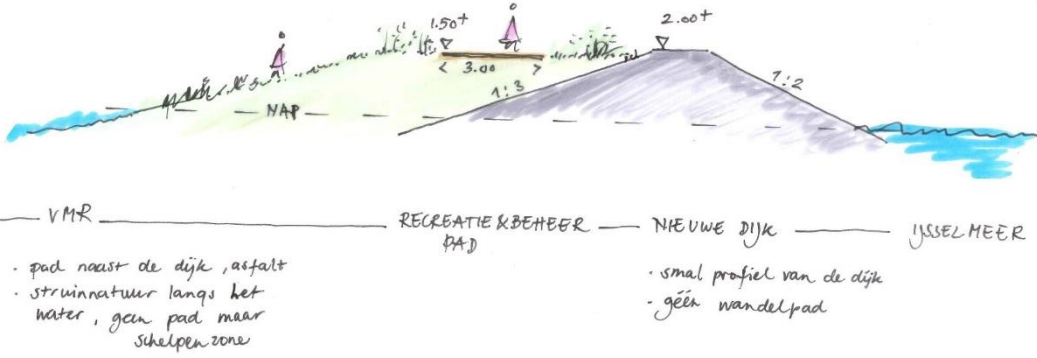 1.50+
2.00+
< 3.00 >
1:3
1:2
NAP
VMR
RECREATIE & BEHEER
PAD
NIEUWE DIJK
IJSSELMEER
· pad naast de dijk, asfalt
· struinnatuur langs het
water, geen pad maar
schelpenzone
· smal profiel van de dijk
- géén wandelpad